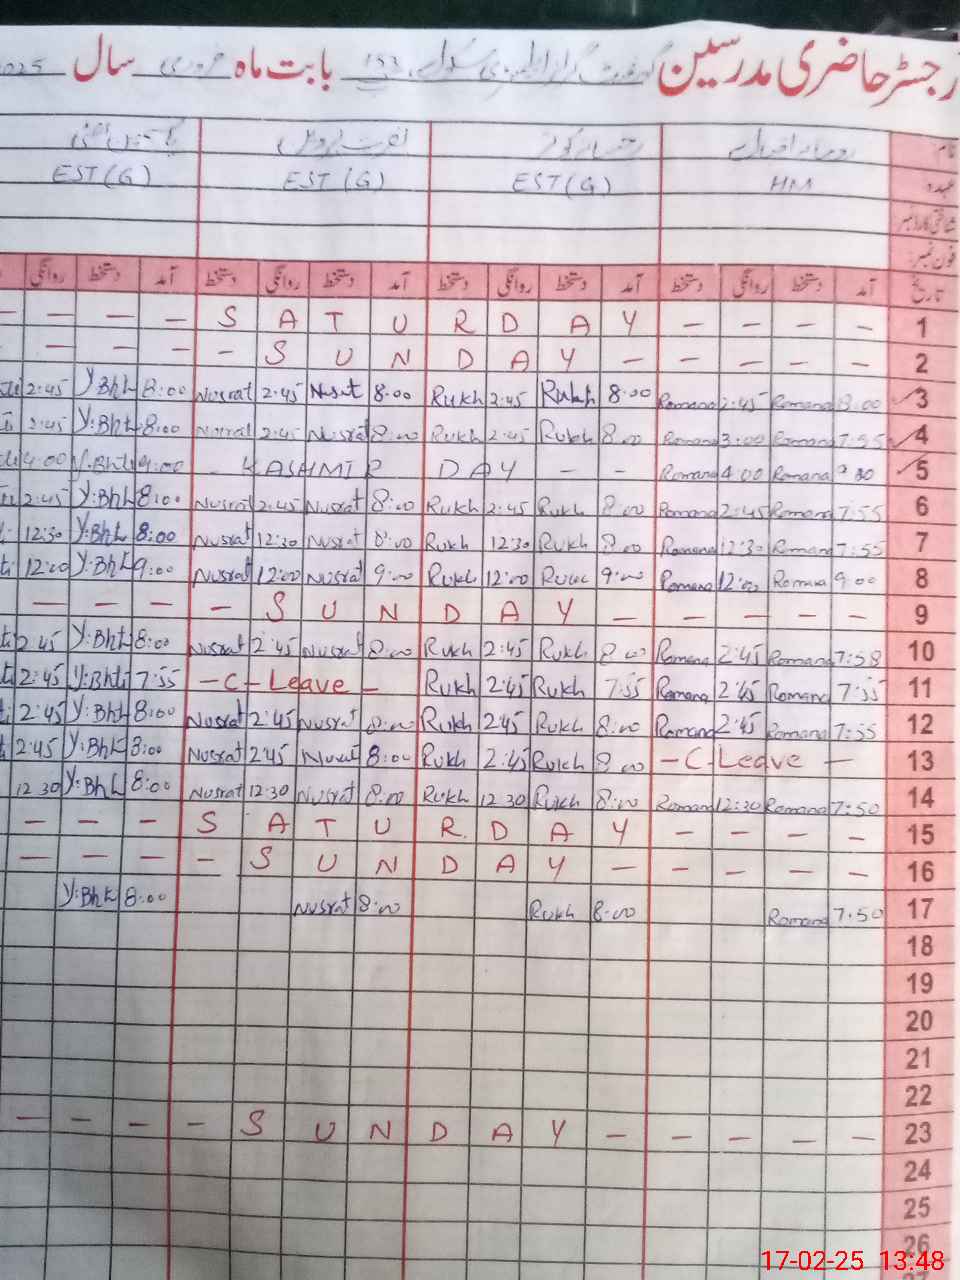 رجسٹر حاضری مدرسین گورنمنٹ گرلز ایلیمنٹری سکول 153 بابت ماہ فروری سال 2025
نام:
عہدہ HM EST (G) EST (G) EST (G)
شناختی کارڈ نمبر:
فون نمبر:
تاریخ آمد دستخط روانگی دستخط آمد دستخط روانگی دستخط آمد دستخط روانگی دستخط آمد دستخط روانگی
— — — — S A T U R D A Y — — — — 1
— — — — S U N D A Y — — — — — 2
2:45 Y:Bht 8:00 Nusrat 2:45 Nusrat 8:00 Rukh 2:45 Rukh 8:00 Romana 2:45 Romana 8:00 3
2:45 Y:Bht 8:00 Nusrat 2:45 Nusrat 8:00 Rukh 2:45 Rukh 8:00 Romana 3:00 Romana 7:55 4
4:00 Y:Bhti 9:00 - KASHMIR DAY — — Romana 4:00 Romana 5
2:45 Y:Bht 8:00 Nusrat 2:45 Nusrat 8:00 Rukh 2:45 Rukh 8:00 Romana 2:45 Romana 7:55 6
12:30 Y:Bht 8:00 Nusrat 12:30 Nusrat 8:00 Rukh 12:30 Rukh 8:00 Romana 12:30 Romana 7:55 7
12:00 Y:Bht 9:00 Nusrat 12:00 Nusrat 9:00 Rukh 12:00 Rukh 9:00 Romana 12:00 Romana 9:00 8
— — — — S U N D A Y — — — — — 9
2:45 Y:Bht 8:00 Nusrat 2:45 Nusrat 8:00 Rukh 2:45 Rukh 8:00 Romana 2:45 Romana 7:58 10
2:45 Y:Bhti 7:55 — C - Leave — Rukh 2:45 Rukh 7:55 Romana 2:45 Romana 7:55 11
2:45 Y:Bht 8:00 Nusrat 2:45 Nusrat 8:00 Rukh 2:45 Rukh 8:00 Romana 2:45 Romana 7:55 12
2:45 Y:Bht 8:00 Nusrat 2:45 Nusrat 8:00 Rukh 2:45 Rukh 8:00 — C - Leave — 13
12:30 Y:Bht 8:00 Nusrat 12:30 Nusrat 8:00 Rukh 12:30 Rukh 8:00 Romana 12:30 Romana 7:50 14
— — — S A T U R D A Y — — — — 15
— — — — S U N D A Y — — — — — 16
Y:Bht 8:00 Nusrat 8:00 Rukh 8:00 Romana 7:50 17
18
19
20
21
22
— — — — S U N D A Y — — — — — 23
24
25
26
17-02-25 13:48